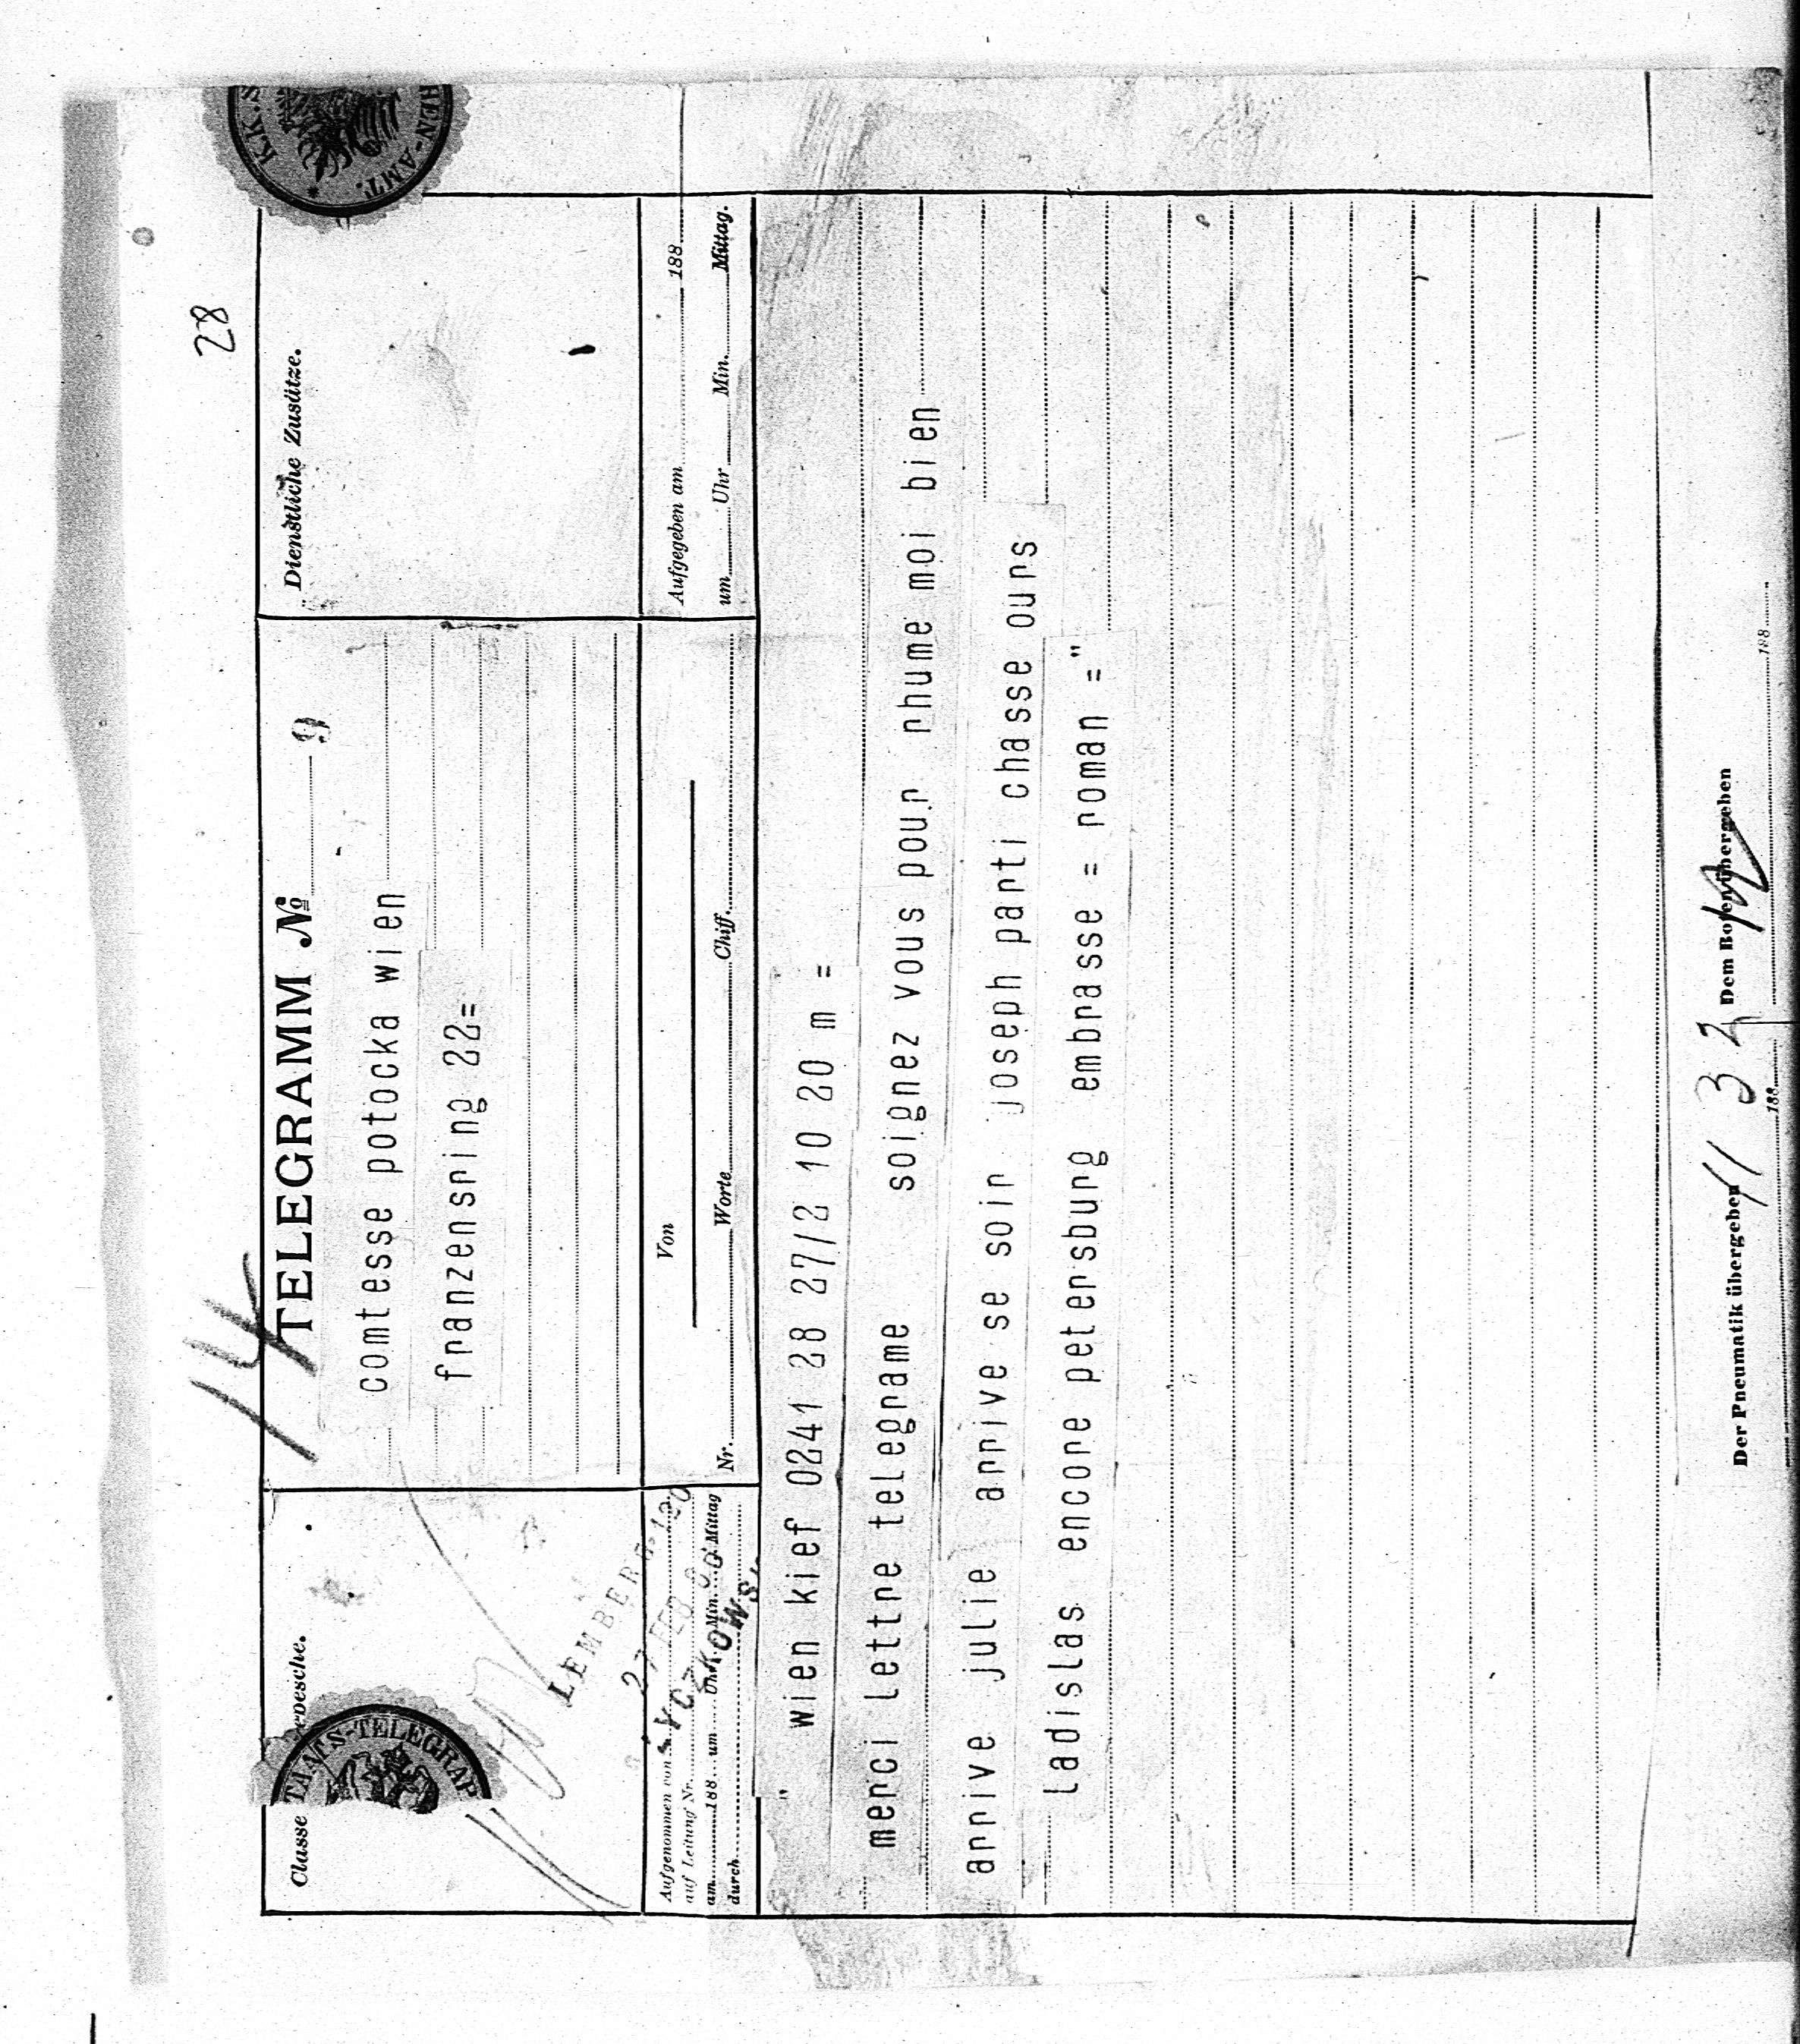 28
14
Classe
TAATS-TELEGRAP
K.K.S
HEN-AMT.
TELEGRAMM №
comtesse potocka wien
franzensring 22=
Dienstliche Zusätze.
LEMBERG
27 FEB
Aufgenommen von
auf Leitung Nr.
am 188 um Uhr Min. Mittag
durch
Von
Nr. Worte Chiff.
Aufgegeben am 188
um Uhr Min. Mittag.
" wien kief 0241 28 27/2 10 20 m =
merci lettre telegrame soignez vous pour rhume moi bien
arrive julie arrive se soir joseph parti chasse ours
ladislas encore petersburg embrasse = roman ="
Der Pneumatik übergeben 188
11 32
Dem Boten übergeben 188